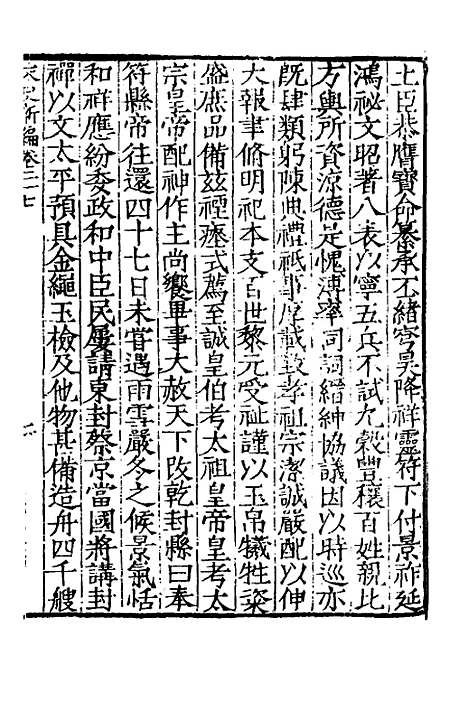 上臣恭膺寶命纂承丕緒穹昊降祥靈符下付景祚延
鴻祕文昭著八表以寧五兵不試九穀豐穰百姓親比
方輿所資涼德是愧溥率同詞縉紳協議因以時巡亦
既肆類躬陳典禮祗事厚載致孝祖宗潔誠嚴配以伸
大報聿脩明祀本支百世黎元受祉謹以玉帛犧牲粢
盛庶品備玆禋瘞式薦至誠皇伯考太祖皇帝皇考太
宗皇帝配神作主尚饗畢事大赦天下改乾封縣曰奉
符縣帝往還四十七日未甞遇雨雪嚴冬之候景氣恬
和祥應紛委政和中臣民屢請東封蔡京當國將講封
禪以文太平預具金繩玉檢及他物甚備造舟四千艘
宋史新編卷三十七